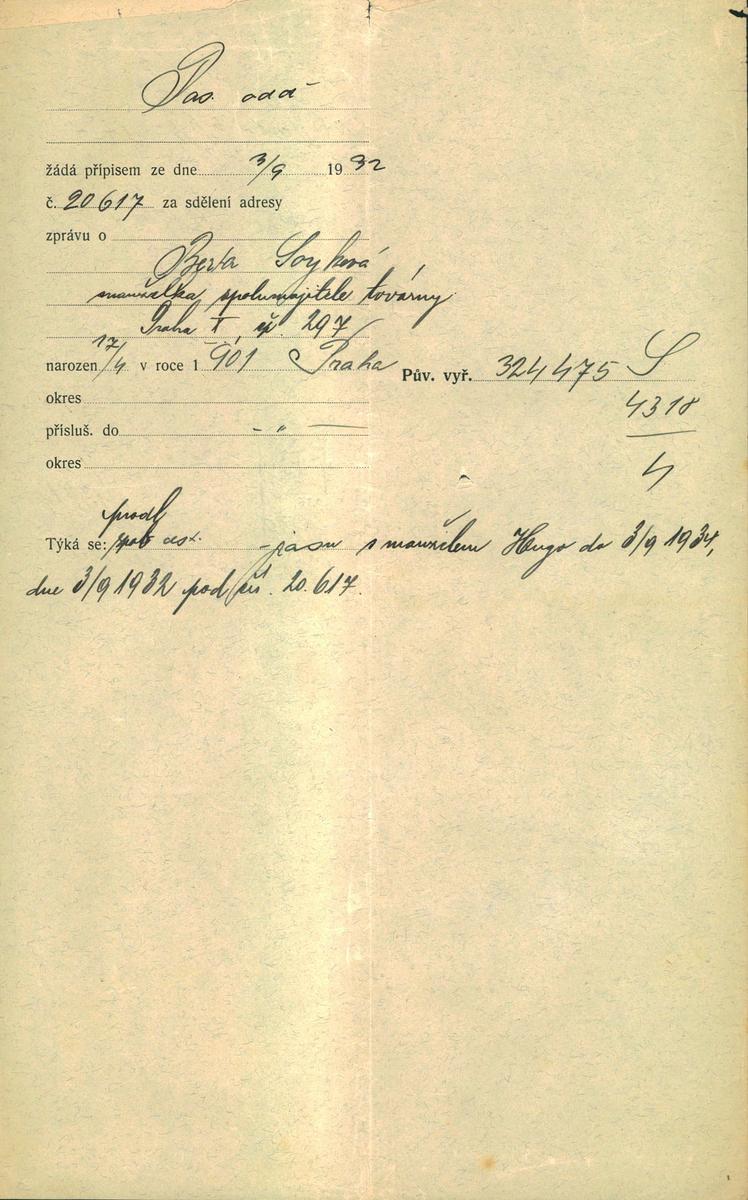 Pas. odd
žádá přípisem ze dne 3/9 1932
č. 20617 za sdělení adresy
zprávu o
Berta Soyková
manželka spolumajitele továrny
Praha X, čp. 297
narozen 17/4 v roce 1 901 Praha
Pův. vyř. 324475 S
okres
4318
přísluš. do - " -
4
okres
prodl
Týká se: pasu s manželem Hugo do 3/9 1934,
dne 3/9 1932 pod čís. 20.617.